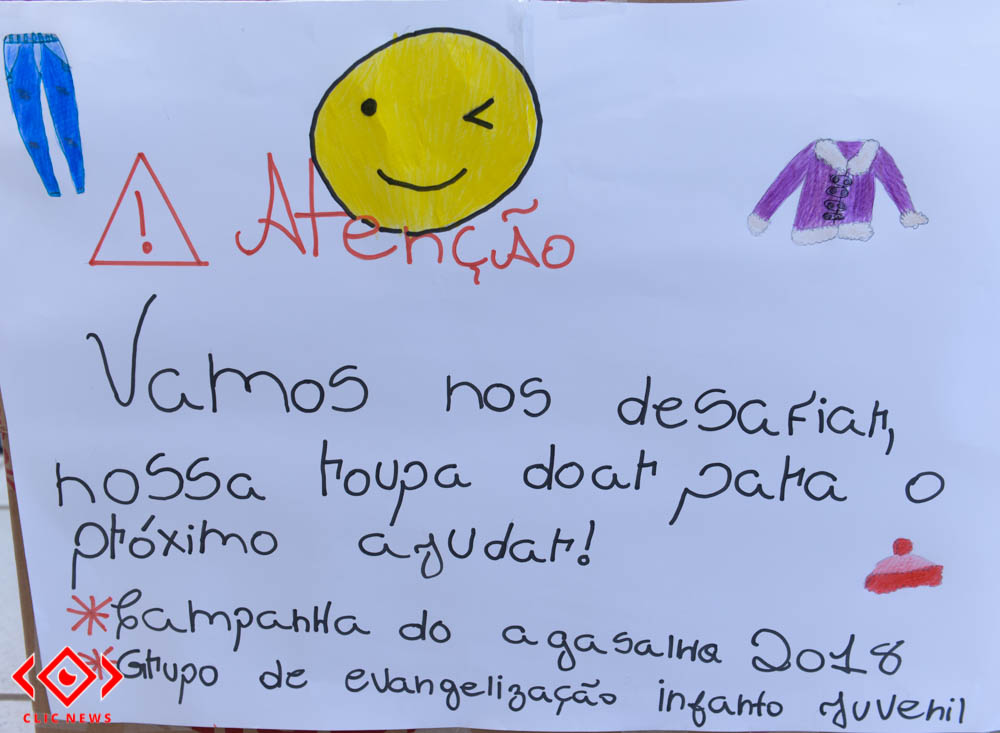 ! Atenção
Vamos nos desafiar,
nossa roupa doar para o
próximo ajudar!
*Campanha do agasalho 2018
*Grupo de evangelização infanto juvenil
CLIC NEWS